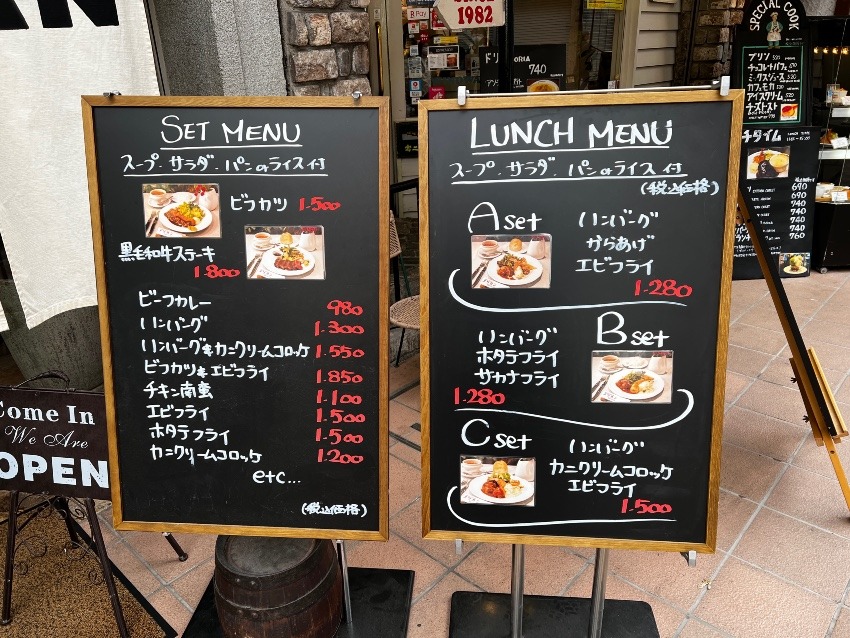 SINCE
1982
R Pay
740
SPECIAL COOK
プリン
チョコレートパフェ
ミックスジュース
カフェモカ
アイスクリーム
チーズトースト
チタイム
690
690
740
740
740
760
SET MENU
スープ・サラダ・パンorライス付
ビフカツ 1.500
黒毛和牛ステーキ
1.800
ビーフカレー 980
ハンバーグ 1.300
ハンバーグ&カニクリームコロッケ 1.550
ビフカツ&エビフライ 1.850
チキン南蛮 1.100
エビフライ 1.500
ホタテフライ 1.500
カニクリームコロッケ 1.200
etc...
(税込価格)
LUNCH MENU
スープ・サラダ・パンorライス付
(税込価格)
A set
ハンバーグ
からあげ
エビフライ
1.280
B set
ハンバーグ
ホタテフライ
サカナフライ
1.280
C set
ハンバーグ
カニクリームコロッケ
エビフライ
1.500
Come In
We Are
OPEN